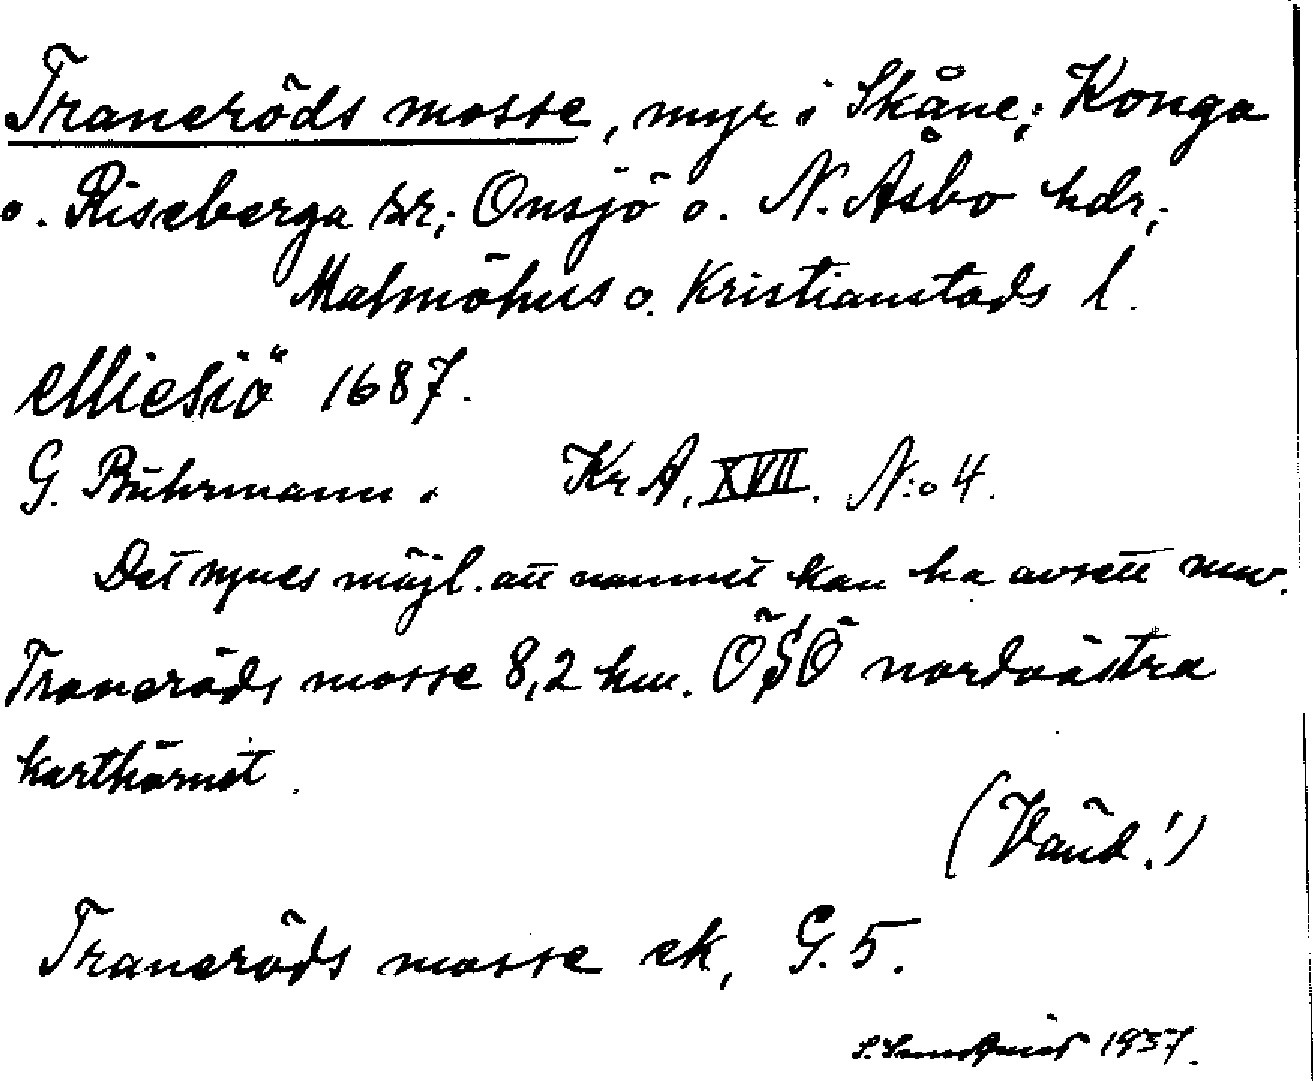 Traneröds mosse, myr i Skåne; Konga
o. Riseberga sr; Onsjö o. N. Åsbo hdr;
Malmöhus o. Kristianstads l.
Miesiö 1687.
G. Buhrmann. Kr A. XVII. N:o 4.
Det synes möjl. att namnet kan ha avsett nuv.
Traneröds mosse 8,2 km. ÖSÖ nordvästra
karthörnet.
(Vänd!)
Traneröds mosse ek, G. 5.
S. Sundqvist 1937.